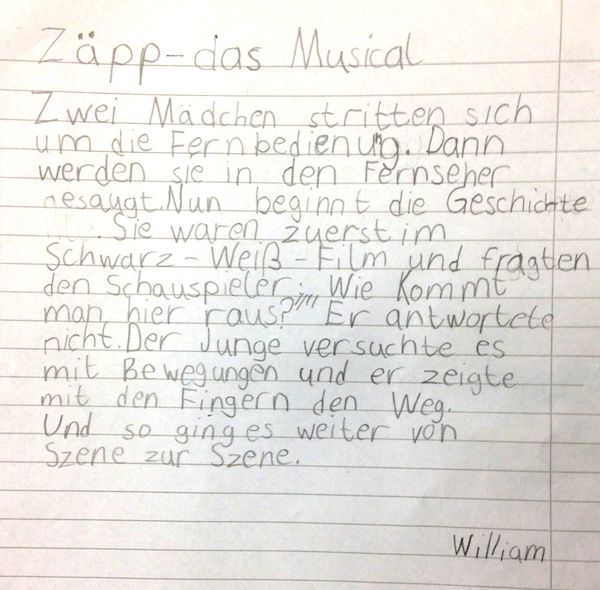 Zäpp-das Musical
Zwei Mädchen stritten sich
um die Fernbedienung. Dann
werden sie in den Fernseher
gesaugt. Nun beginnt die Geschichte
. Sie waren zuerst im
Schwarz-Weiß-Film und fragten
den Schauspieler: Wie Kommt
man hier raus?" Er antwortete
nicht. Der Junge versuchte es
mit Bewegungen und er zeigte
mit den Fingern den Weg.
Und so ging es weiter von
Szene zur Szene.
William